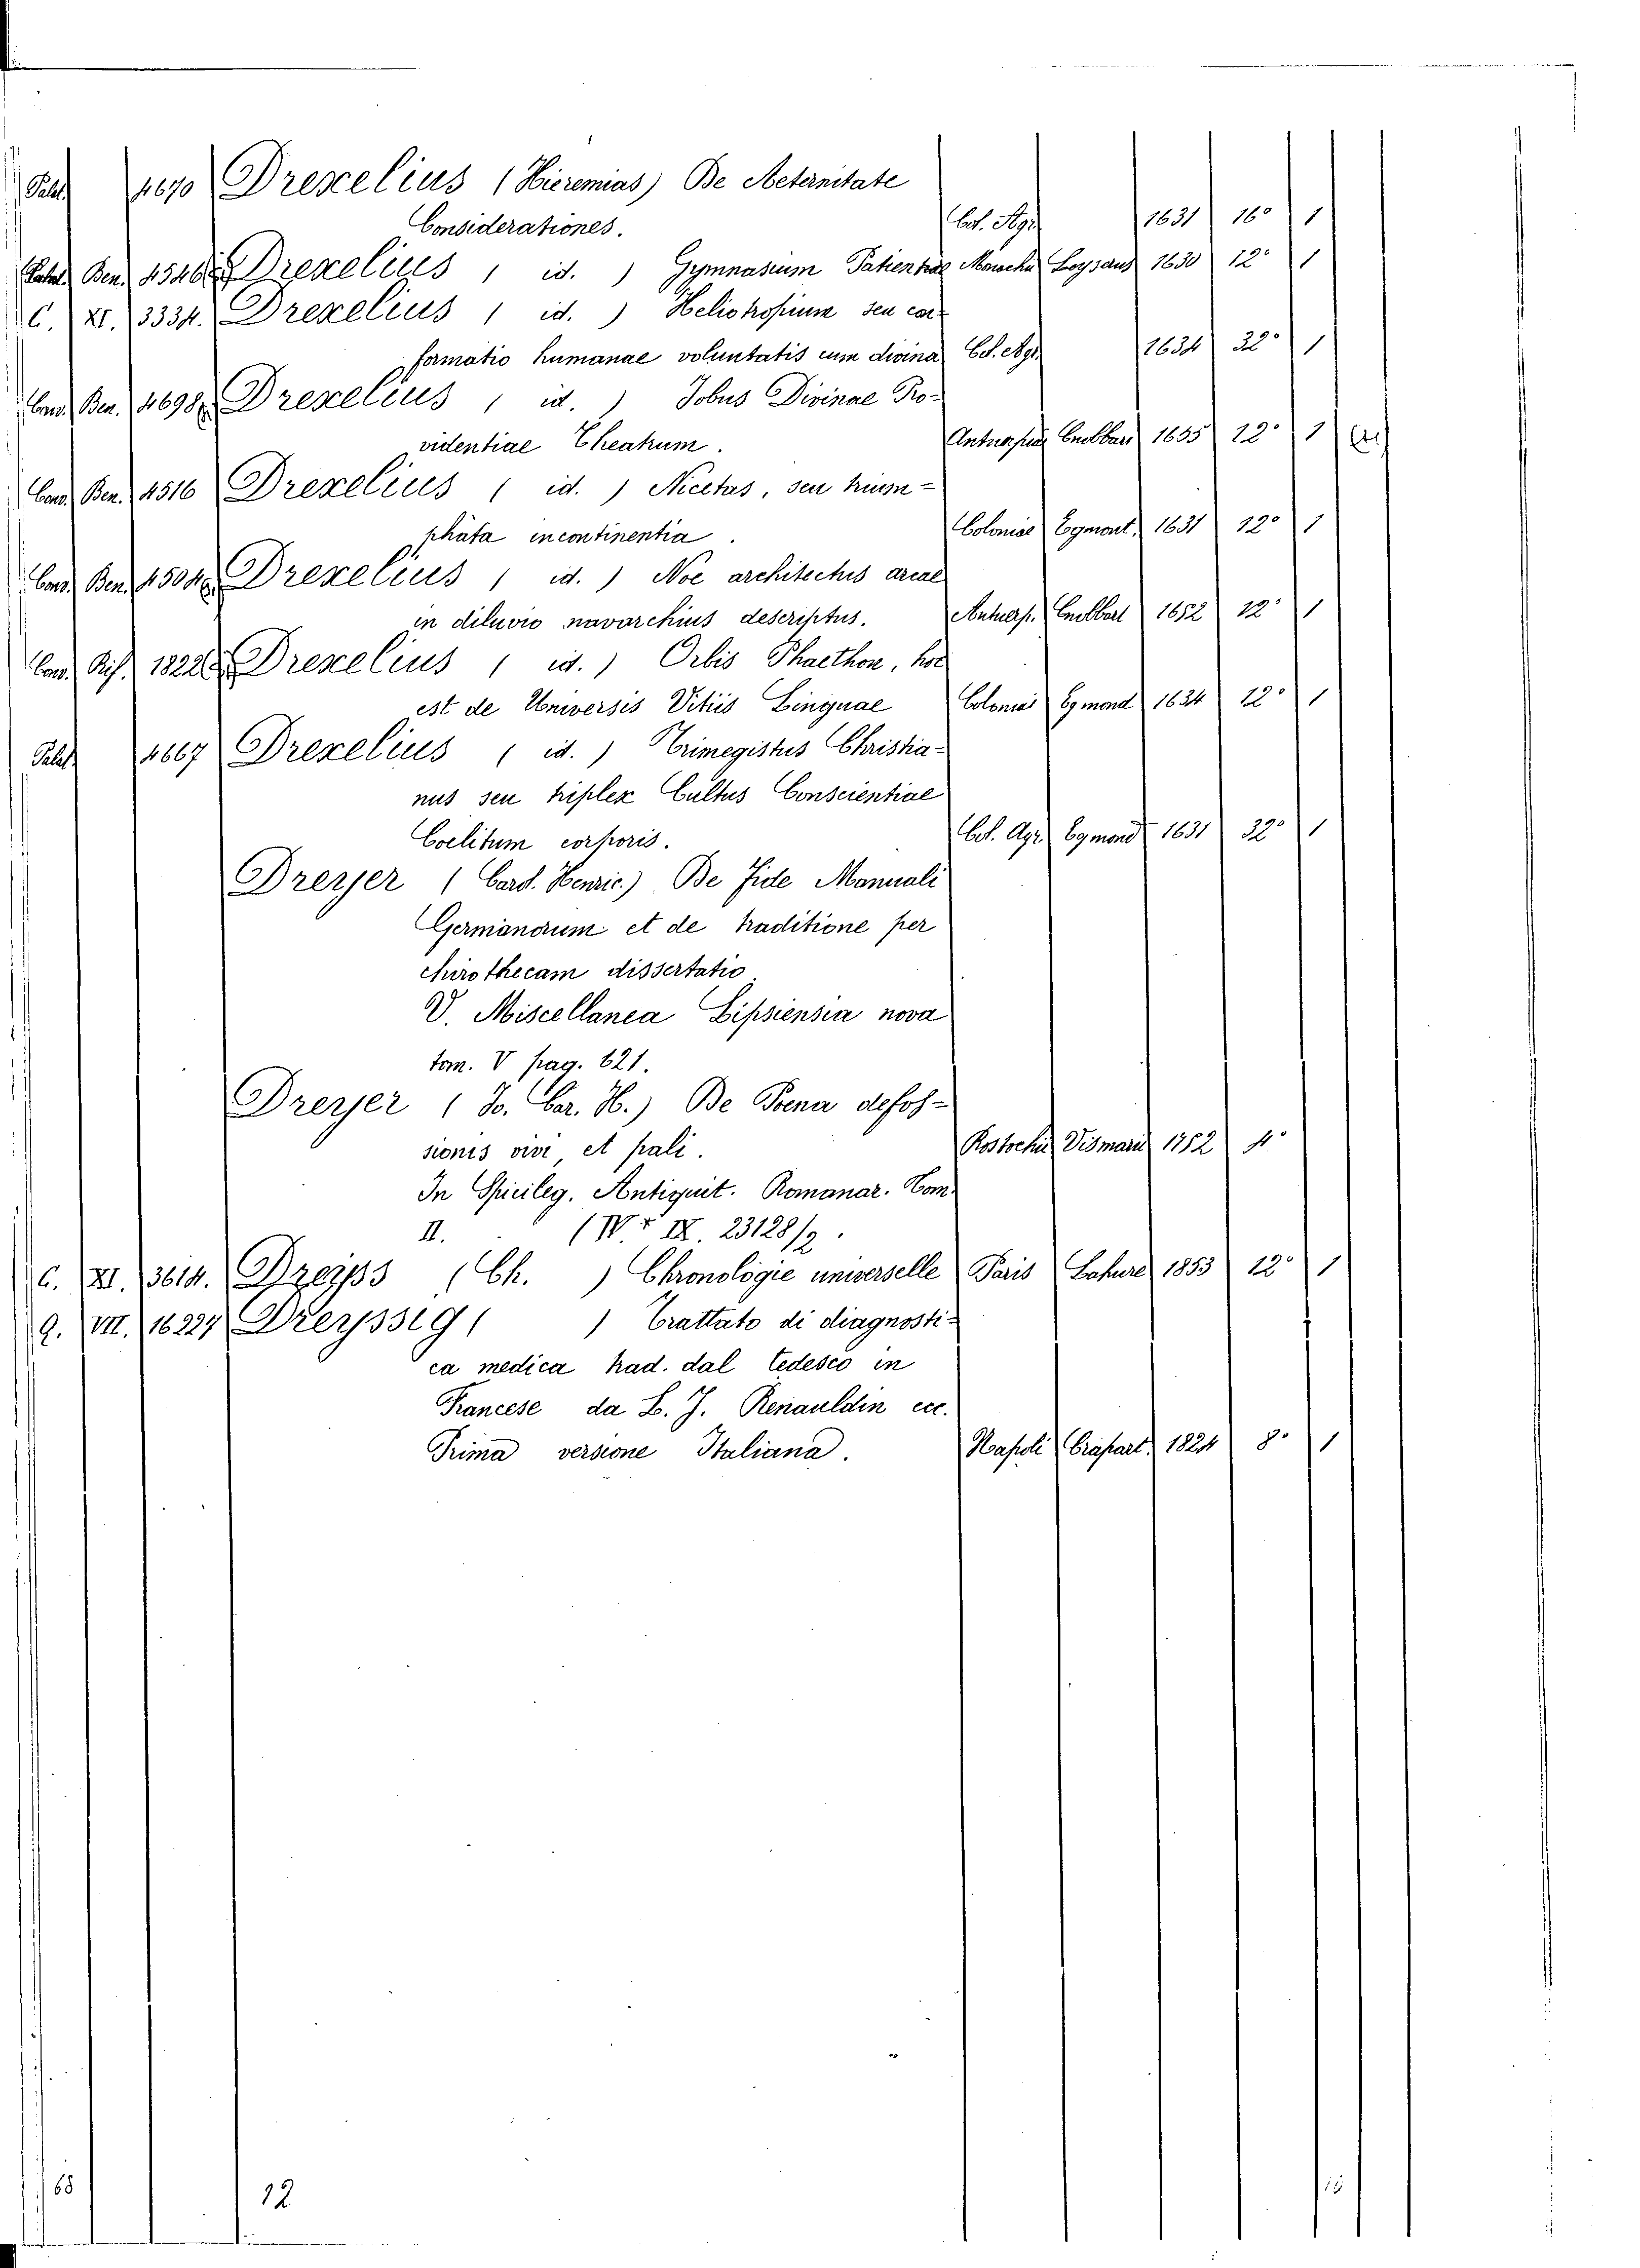 Palat. 4670 Drexelius (Hieremias) De Aeternitate
Considerationes. Col. Agr. 1631 16° 1
Palat. Ben. 4546 Drexelius ( id. ) Gymnasium Patientiae Monachi Leysand 1630 12° 1
C. XI. 3334. Drexelius ( id. ) Heliotropium seu con-
formatio humanae voluntatis cum divina Col. Agr. 1634 32° 1
Cond. Ben. 4698 Drexelius ( id. ) Jobus Divinae Pro-
videntiae Theatrum. Antuerpiae Cnobbari 1655 12° 1
Cond. Ben. 4516 Drexelius ( id. ) Nicetas, seu trium-
phata incontinentia. Coloniae Egmont. 1631 12° 1
Cond. Ben. 4504 Drexelius ( id. ) Noe architectus arcae
in diluvio navarchius descriptus. Antuerp. Cnobbart 1652 12° 1
Cond. Rif. 1822 Drexelius ( id. ) Orbis Phaethon, hoc
est de Universis Vitiis Linguae Coloniae Egmond 1634 12° 1
Palat. 4667 Drexelius ( id. ) Trimegistus Christia-
nus seu triplex Cultus Conscientiae
Coelitum corporis. Col. Agr. Egmond 1631 32° 1
Dreyer ( Carol. Henric.) De Fide Manuali
Germanorum et de traditione per
chirothecam dissertatio.
V. Miscellanea Lipsiensia nova
tom. V pag. 621.
Dreyer ( Jo. Car. H.) De Poena defos-
sionis vivi, et pali. Rostochii Vismarii 1752 4°
In Spicileg. Antiquit. Romanar. Tom.
II. (Nr IX. 23128/2.
C. XI. 3614. Dreyss (Ch. ) Chronologie universelle Paris Lahure 1853 12° 1
Q. VII. 16227 Dreyssig ( ) Trattato di diagnosti-
ca medica trad. dal tedesco in
Francese da L. J. Renauldin ecc.
Prima versione Italiana. Napoli Crapart. 1824 8° 1
68 12 15